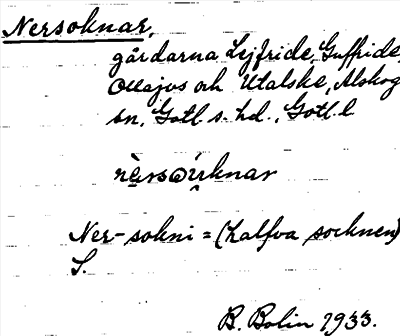 Nersoknar,
gårdarna Lifride, Guffride,
Ollajvs och Utalske, Alskog
sn, Gotl. s. hd., Gotl. l
Ner-sokni = (halfva socknen)
S.
B. Bolin 1933.